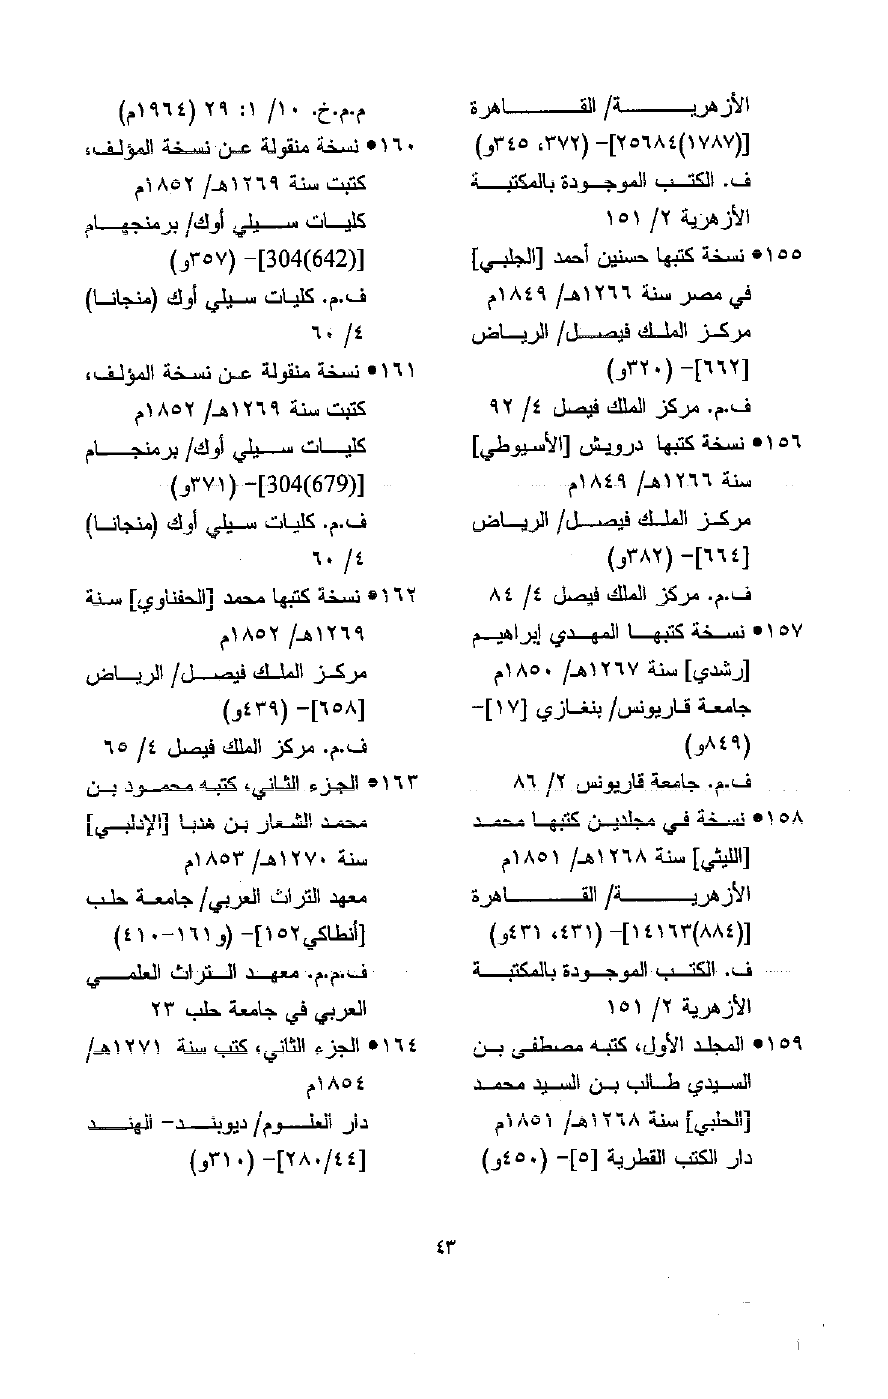 الأزهرية/ القاهرة
[(١٧٨٧)٢٥٦٨٤]- (٣٧٢، ٣٤٥و)
ف. الكتب الموجودة بالمكتبة
الأزهرية ٢/ ١٥١
١٥٥• نسخة كتبها حسنين أحمد [الجلبي]
في مصر سنة ١٢٦٦هـ/ ١٨٤٩م
مركز الملك فيصل/ الرياض
[٦٦٢]- (٣٢٠و)
ف.م. مركز الملك فيصل ٤/ ٩٢
١٥٦• نسخة كتبها درويش [الأسيوطي]
سنة ١٢٦٦هـ/ ١٨٤٩م
مركز الملك فيصل/ الرياض
[٦٦٤]- (٣٨٢و)
ف.م. مركز الملك فيصل ٤/ ٨٤
١٥٧• نسخة كتبها المهدي إبراهيم
[رشدي] سنة ١٢٦٧هـ/ ١٨٥٠م
جامعة قاريونس/ بنغازي [١٧]-
(٨٤٩و)
ف.م. جامعة قاريونس ٢/ ٨٦
١٥٨• نسخة في مجلدين كتبها محمد
[الليثي] سنة ١٢٦٨هـ/ ١٨٥١م
الأزهرية/ القاهرة
[(٨٨٤)١٤١٦٣]- (٤٣١، ٤٣١و)
ف. الكتب الموجودة بالمكتبة
الأزهرية ٢/ ١٥١
١٥٩• المجلد الأول، كتبه مصطفى بن
السيدي طالب بن السيد محمد
[الحلبي] سنة ١٢٦٨هـ/ ١٨٥١م
دار الكتب القطرية [٥]- (٤٥٠و)
م.م.خ. ١٠/ ١: ٢٩ (١٩٦٤م)
١٦٠• نسخة منقولة عن نسخة المؤلف،
كتبت سنة ١٢٦٩هـ/ ١٨٥٢م
كليات سيلي أوك/ برمنجهام
[304(642)]- (٣٥٧و)
ف.م. كليات سيلي أوك (منجانا)
٤/ ٦٠
١٦١• نسخة منقولة عن نسخة المؤلف،
كتبت سنة ١٢٦٩هـ/ ١٨٥٢م
كليات سيلي أوك/ برمنجام
[304(679)]- (٣٧١و)
ف.م. كليات سيلي أوك (منجانا)
٤/ ٦٠
١٦٢• نسخة كتبها محمد [الحفناوي] سنة
١٢٦٩هـ/ ١٨٥٢م
مركز الملك فيصل/ الرياض
[٦٥٨]- (٤٣٩و)
ف.م. مركز الملك فيصل ٤/ ٦٥
١٦٣• الجزء الثاني، كتبه محمود بن
محمد الشعار بن هدبا [الإدلبي]
سنة ١٢٧٠هـ/ ١٨٥٣م
معهد التراث العربي/ جامعة حلب
[أنطاكي١٥٢]- (و١٦١-٤١٠)
ف.م.م. معهد التراث العلمي
العربي في جامعة حلب ٢٣
١٦٤• الجزء الثاني، كتب سنة ١٢٧١هـ/
١٨٥٤م
دار العلوم/ ديوبند- الهند
[٢٨٠/٤٤]- (٣١٠و)
٤٣